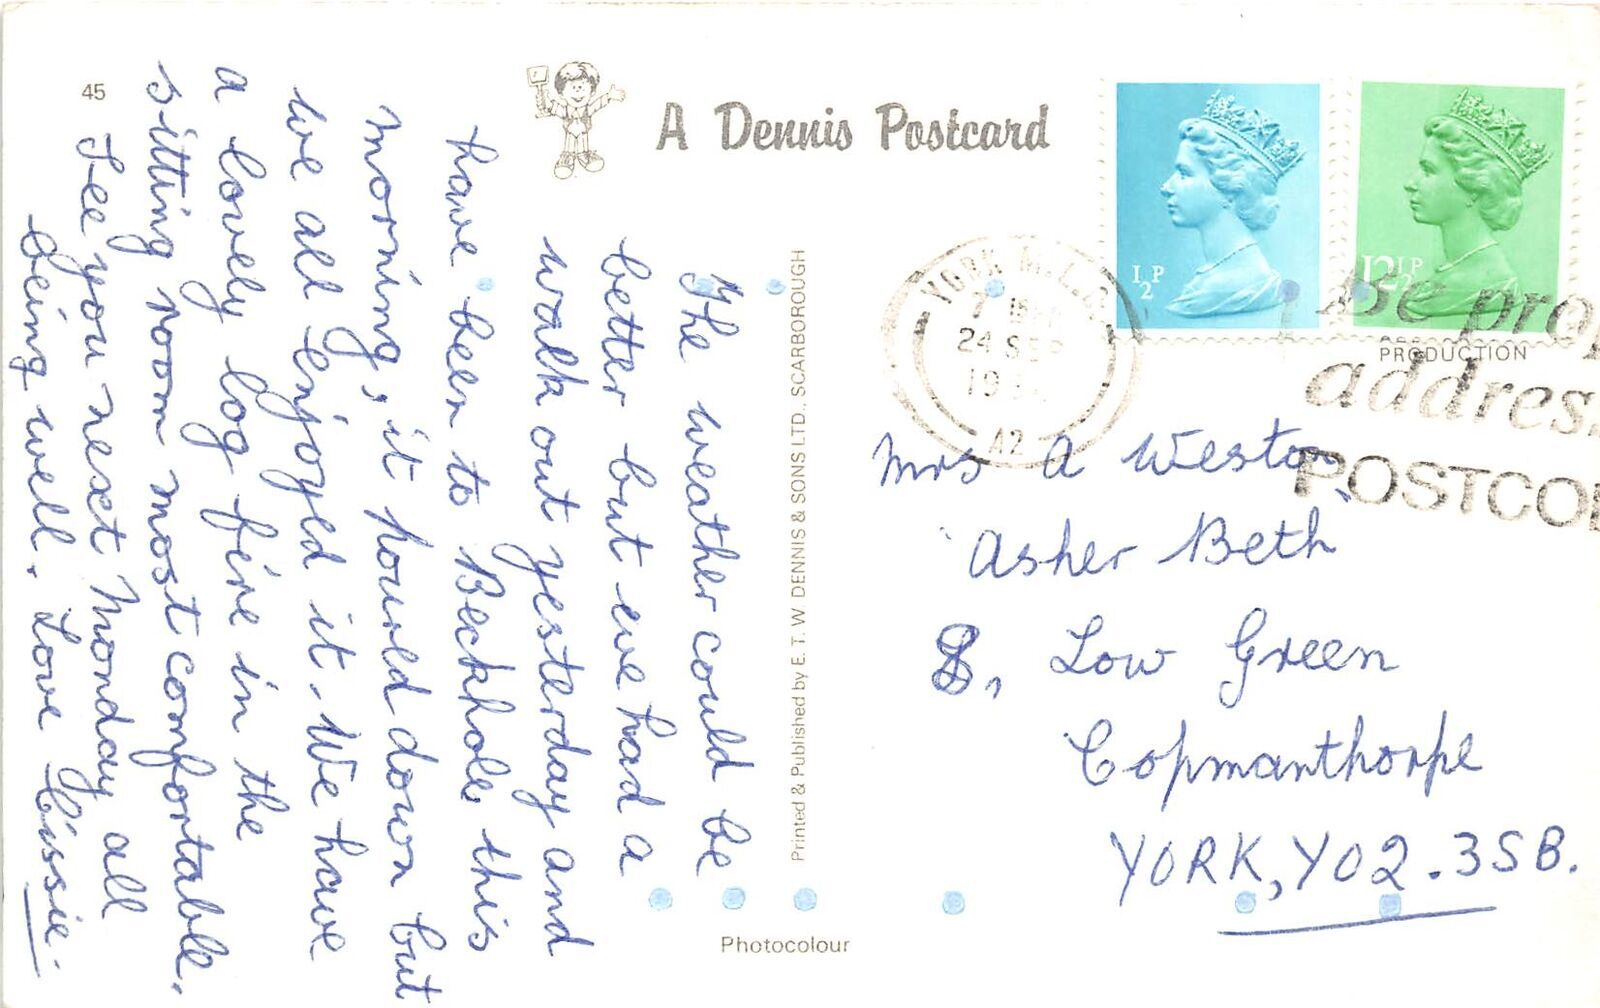 45
A Dennis Postcard
The weather could be
better but we had a
walk out yesterday and
have been to Beckhole this
morning, it poured down but
we all enjoyed it. We have
a lovely log fire in the
sitting room most comfortable.
See you next Monday all
being well. Love Cissie.
Printed & Published by E. T. W DENNIS & SONS LTD., SCARBOROUGH
Photocolour
½P
12½P
PRODUCTION
YORK
24 SEP
A2
Be prop
address
POSTCO
Mrs A Weston
Asher Beth
8, Low Green
Copmanthorpe
YORK, YO2.3SB.